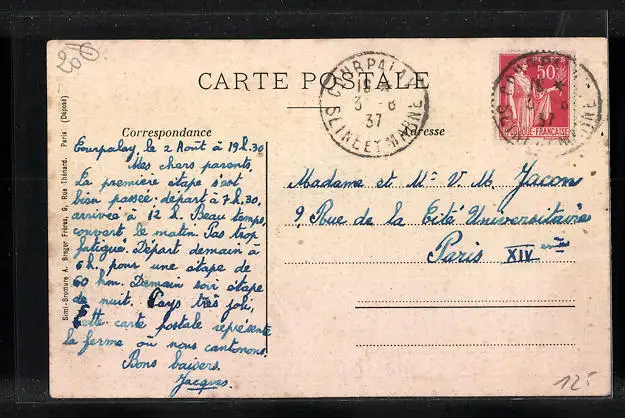 20
CARTE POSTALE
COURPALAY
18 *
3 - 8
37
SEINE ET MARNE
POSTES
50c
REPUBLIQUE-FRANÇAISE
COURPALAY
18 *
3 - 8
37
SEINE ET MARNE
Correspondance
Adresse
Courpalay le 2 Août à 19h.30
Mes chers parents,
La première étape s'est
bien passée: départ à 7h.30.
arrivée à 12 h. Beau temps,
couvert le matin. Pas trop
fatigué. Départ demain à
6h, pour une étape de
60 km. Demain soir étape
de nuit. Pays très joli,
Cette carte postale représente
la ferme où nous cantonons.
Bons baisers.
Jacques.
Madame et Mr V. M. Jacon
9, Rue de la Cité Universitaire
Paris XIVème
Simi-Bromure A. Breger Frères, 9, Rue Thénard. Paris (Déposé)
12-